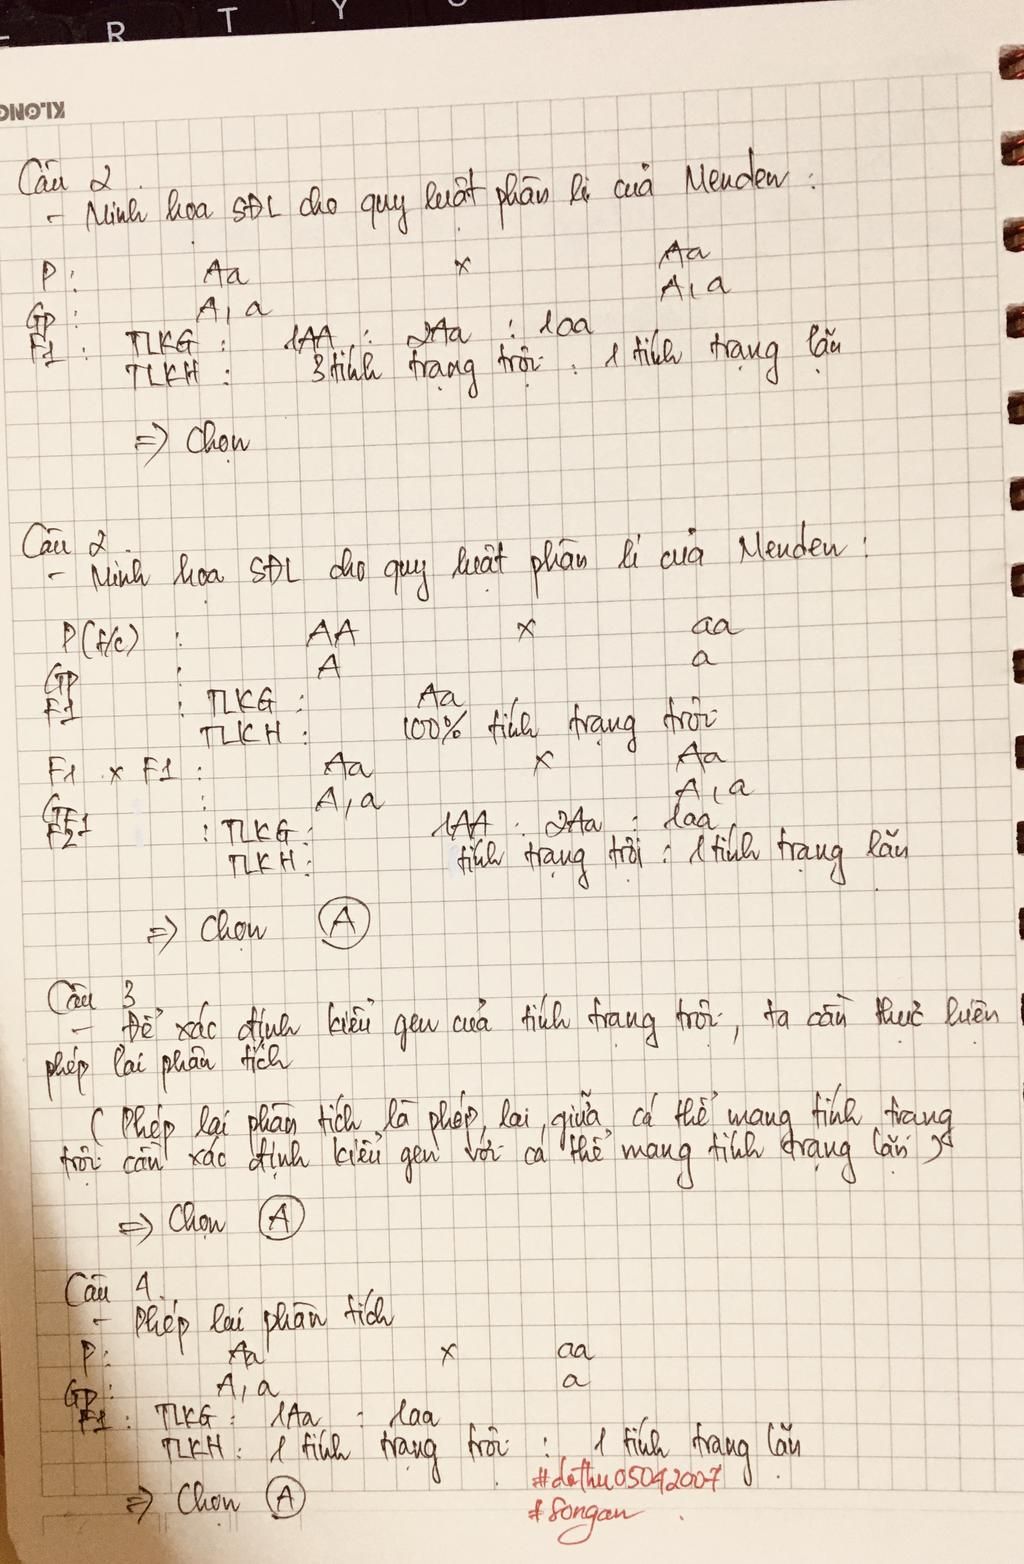 R T Y
KLONG
Câu 2.
- Minh họa SĐL cho quy luật phân li của Menden :
P : Aa x Aa
Gp : A, a A, a
F1 : TLKG : 1AA : 2Aa : 1aa
TLKH : 3 tính trạng trội : 1 tính trạng lặn
=> Chọn
Câu 2.
- Minh họa SĐL cho quy luật phân li của Menden :
P(t/c) : AA x aa
Gp : A a
F1 : TLKG : Aa
TLKH : 100% tính trạng trội
F1 x F1 : Aa x Aa
GF1 : A, a A, a
F2 : TLKG : 1AA : 2Aa : 1aa
TLKH : tính trạng trội : 1 tính trạng lặn
=> Chọn A
Câu 3
- Để xác định kiểu gen của tính trạng trội, ta cần thực hiện
phép lai phân tích
( Phép lai phân tích là phép lai giữa cá thể mang tính trạng
trội cần xác định kiểu gen với cá thể mang tính trạng lặn )
=> Chọn A
Câu 4.
- Phép lai phân tích
P : Aa x aa
Gp : A, a a
F1 : TLKG : 1Aa : 1aa
TLKH : 1 tính trạng trội : 1 tính trạng lặn
=> Chọn A
#dothu05042007
#Songan